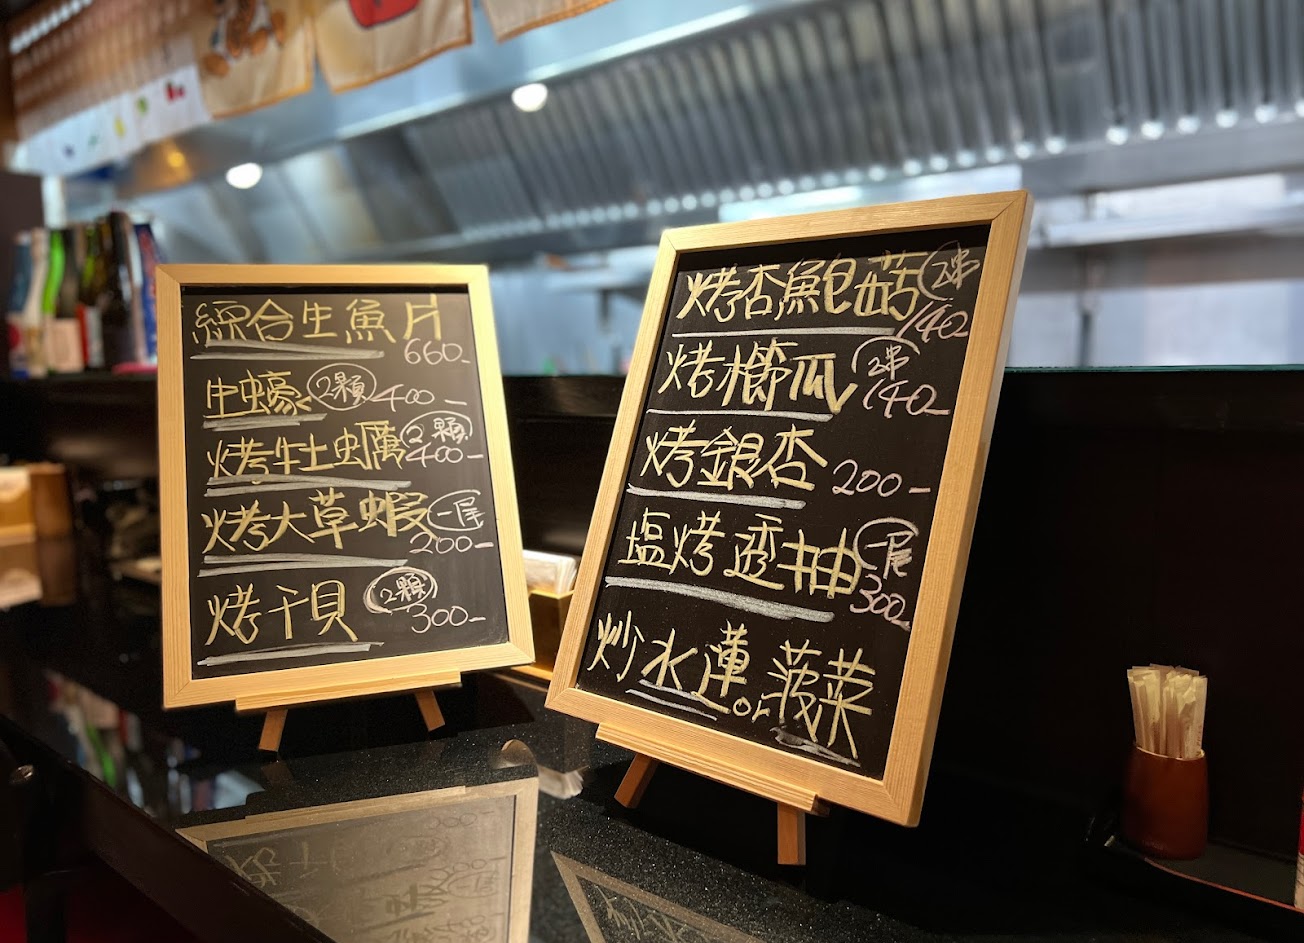 綜合生魚片
660-
生蠔 2顆 400-
烤牡蠣 2顆
400-
烤大草蝦 一尾
200-
烤干貝 2顆
300-
烤杏鮑菇 2串
140-
烤櫛瓜 2串
140-
烤銀杏 200-
塩烤透抽 一尾
300-
炒水蓮or菠菜